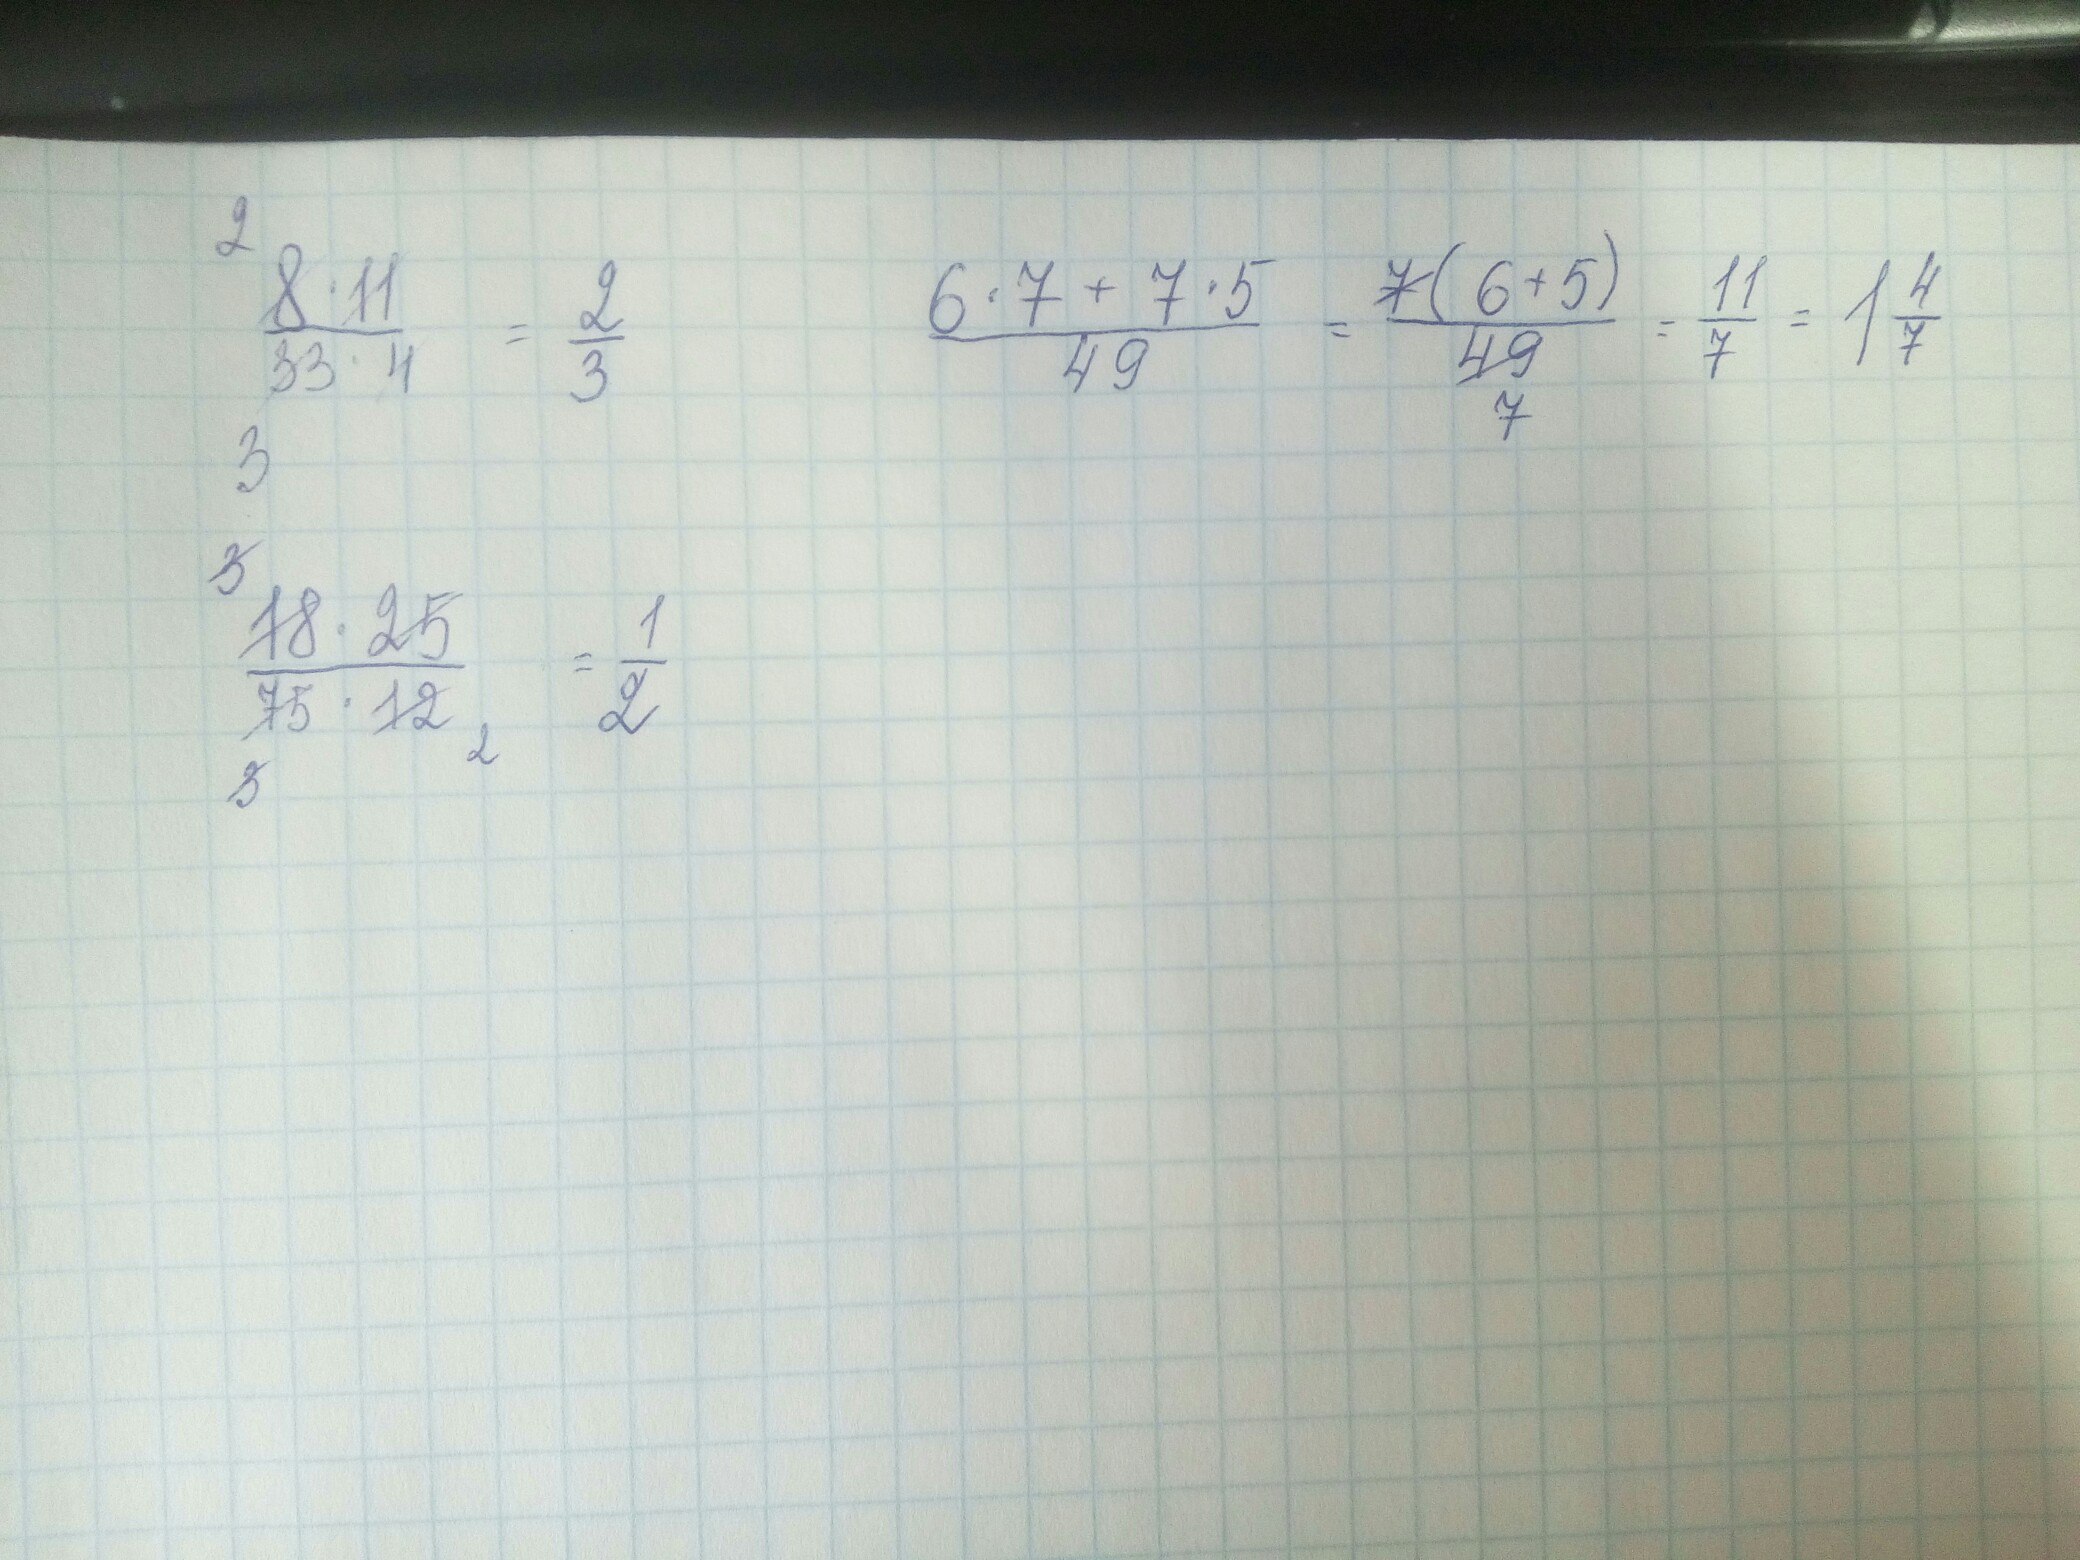 2
8·11 / 33·4 = 2/3
3
6·7 + 7·5 / 49 = 7(6+5) / 49 = 11/7 = 1 4/7
7
3
18·25 / 75·12 = 1/2
2
3